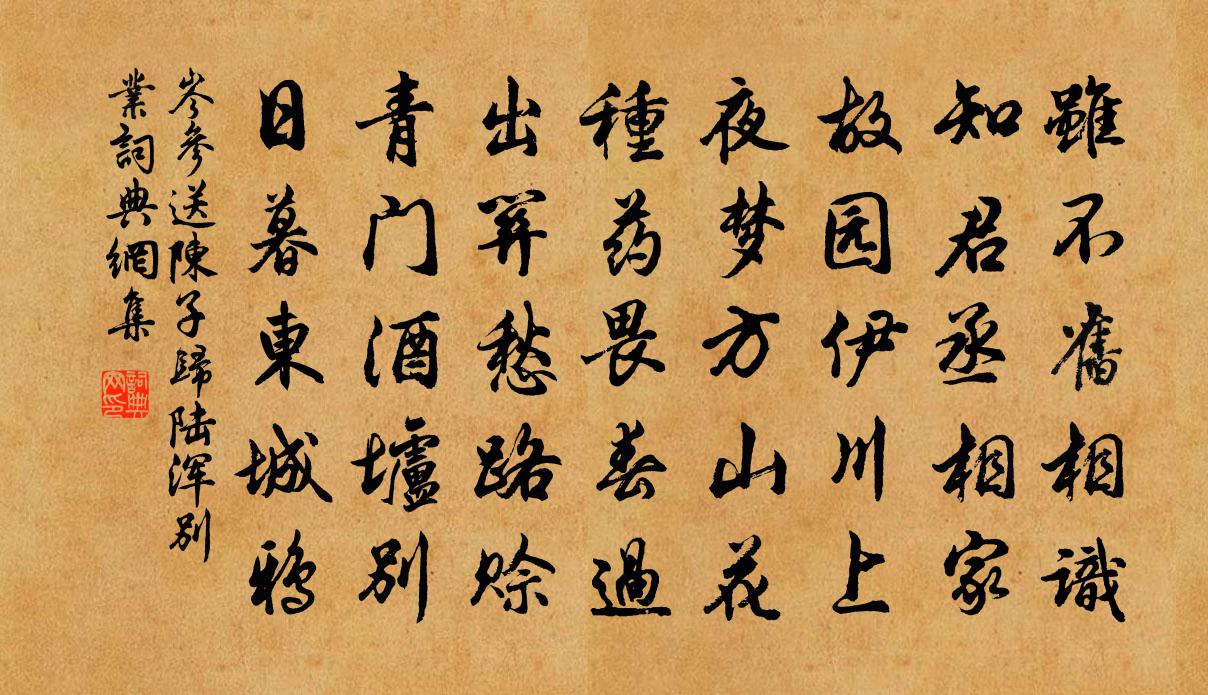 雖不舊相識
知君丞相家
故园伊川上
夜梦方山花
種药畏春過
出関愁路赊
青门酒壚别
日暮東城鴉
岑參送陳子歸陆浑别
業詞典網集
詞典网印